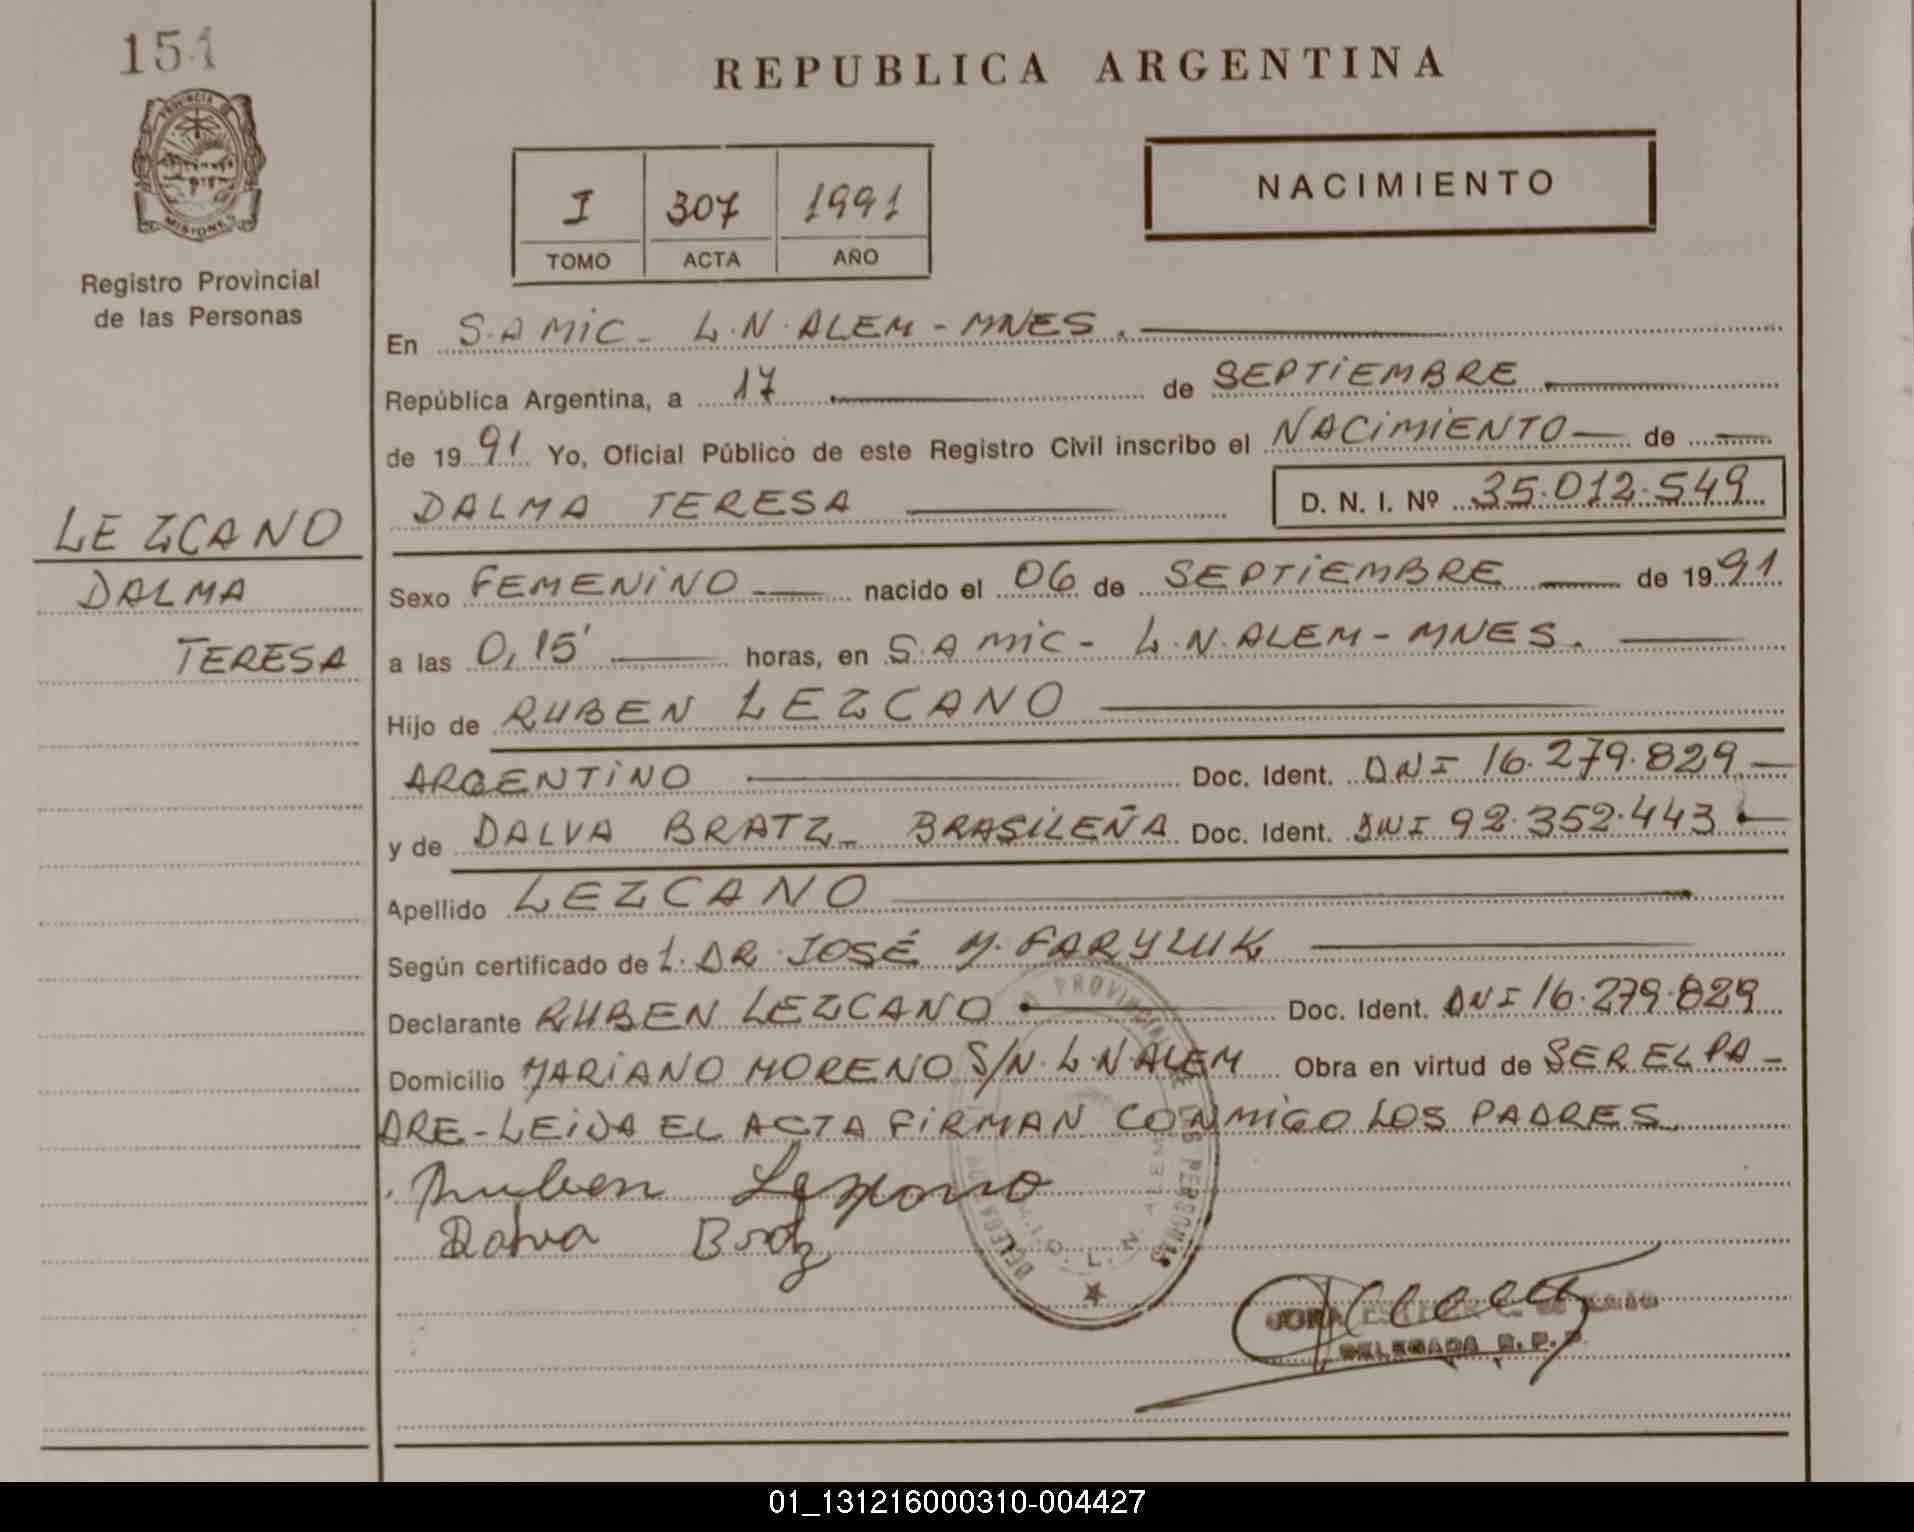 151
PROVINCIA DE
MISIONES
Registro Provincial
de las Personas
LEZCANO
DALMA
TERESA
REPUBLICA ARGENTINA
I 307 1991
TOMO ACTA AÑO
NACIMIENTO
En S.A MIC - L.N.ALEM - MNES.
República Argentina, a 17 de SEPTIEMBRE
de 1991 Yo, Oficial Público de este Registro Civil inscribo el NACIMIENTO de
DALMA TERESA D. N. I. Nº 35.012.549
Sexo FEMENINO nacido el 06 de SEPTIEMBRE de 1991
a las 0,15' horas, en S.A MIC - L.N.ALEM - MNES.
Hijo de RUBEN LEZCANO
ARGENTINO Doc. Ident. DNI 16.279.829
y de DALVA BRATZ - BRASILEÑA Doc. Ident. DNI 92.352.443
Apellido LEZCANO
Según certificado de 1. DR. JOSÉ M. FARYLUK
Declarante RUBEN LEZCANO Doc. Ident. DNI 16.279.829
Domicilio MARIANO MORENO S/N. L.N.ALEM Obra en virtud de SER EL PA-
DRE - LEIDA EL ACTA FIRMAN CONMIGO LOS PADRES
Ruben Lezcano
Dalva Bratz
PROVINCIAL DE LAS PERSONAS
L. N. ALEM
DELEGADA R.P.P.
01_131216000310-004427